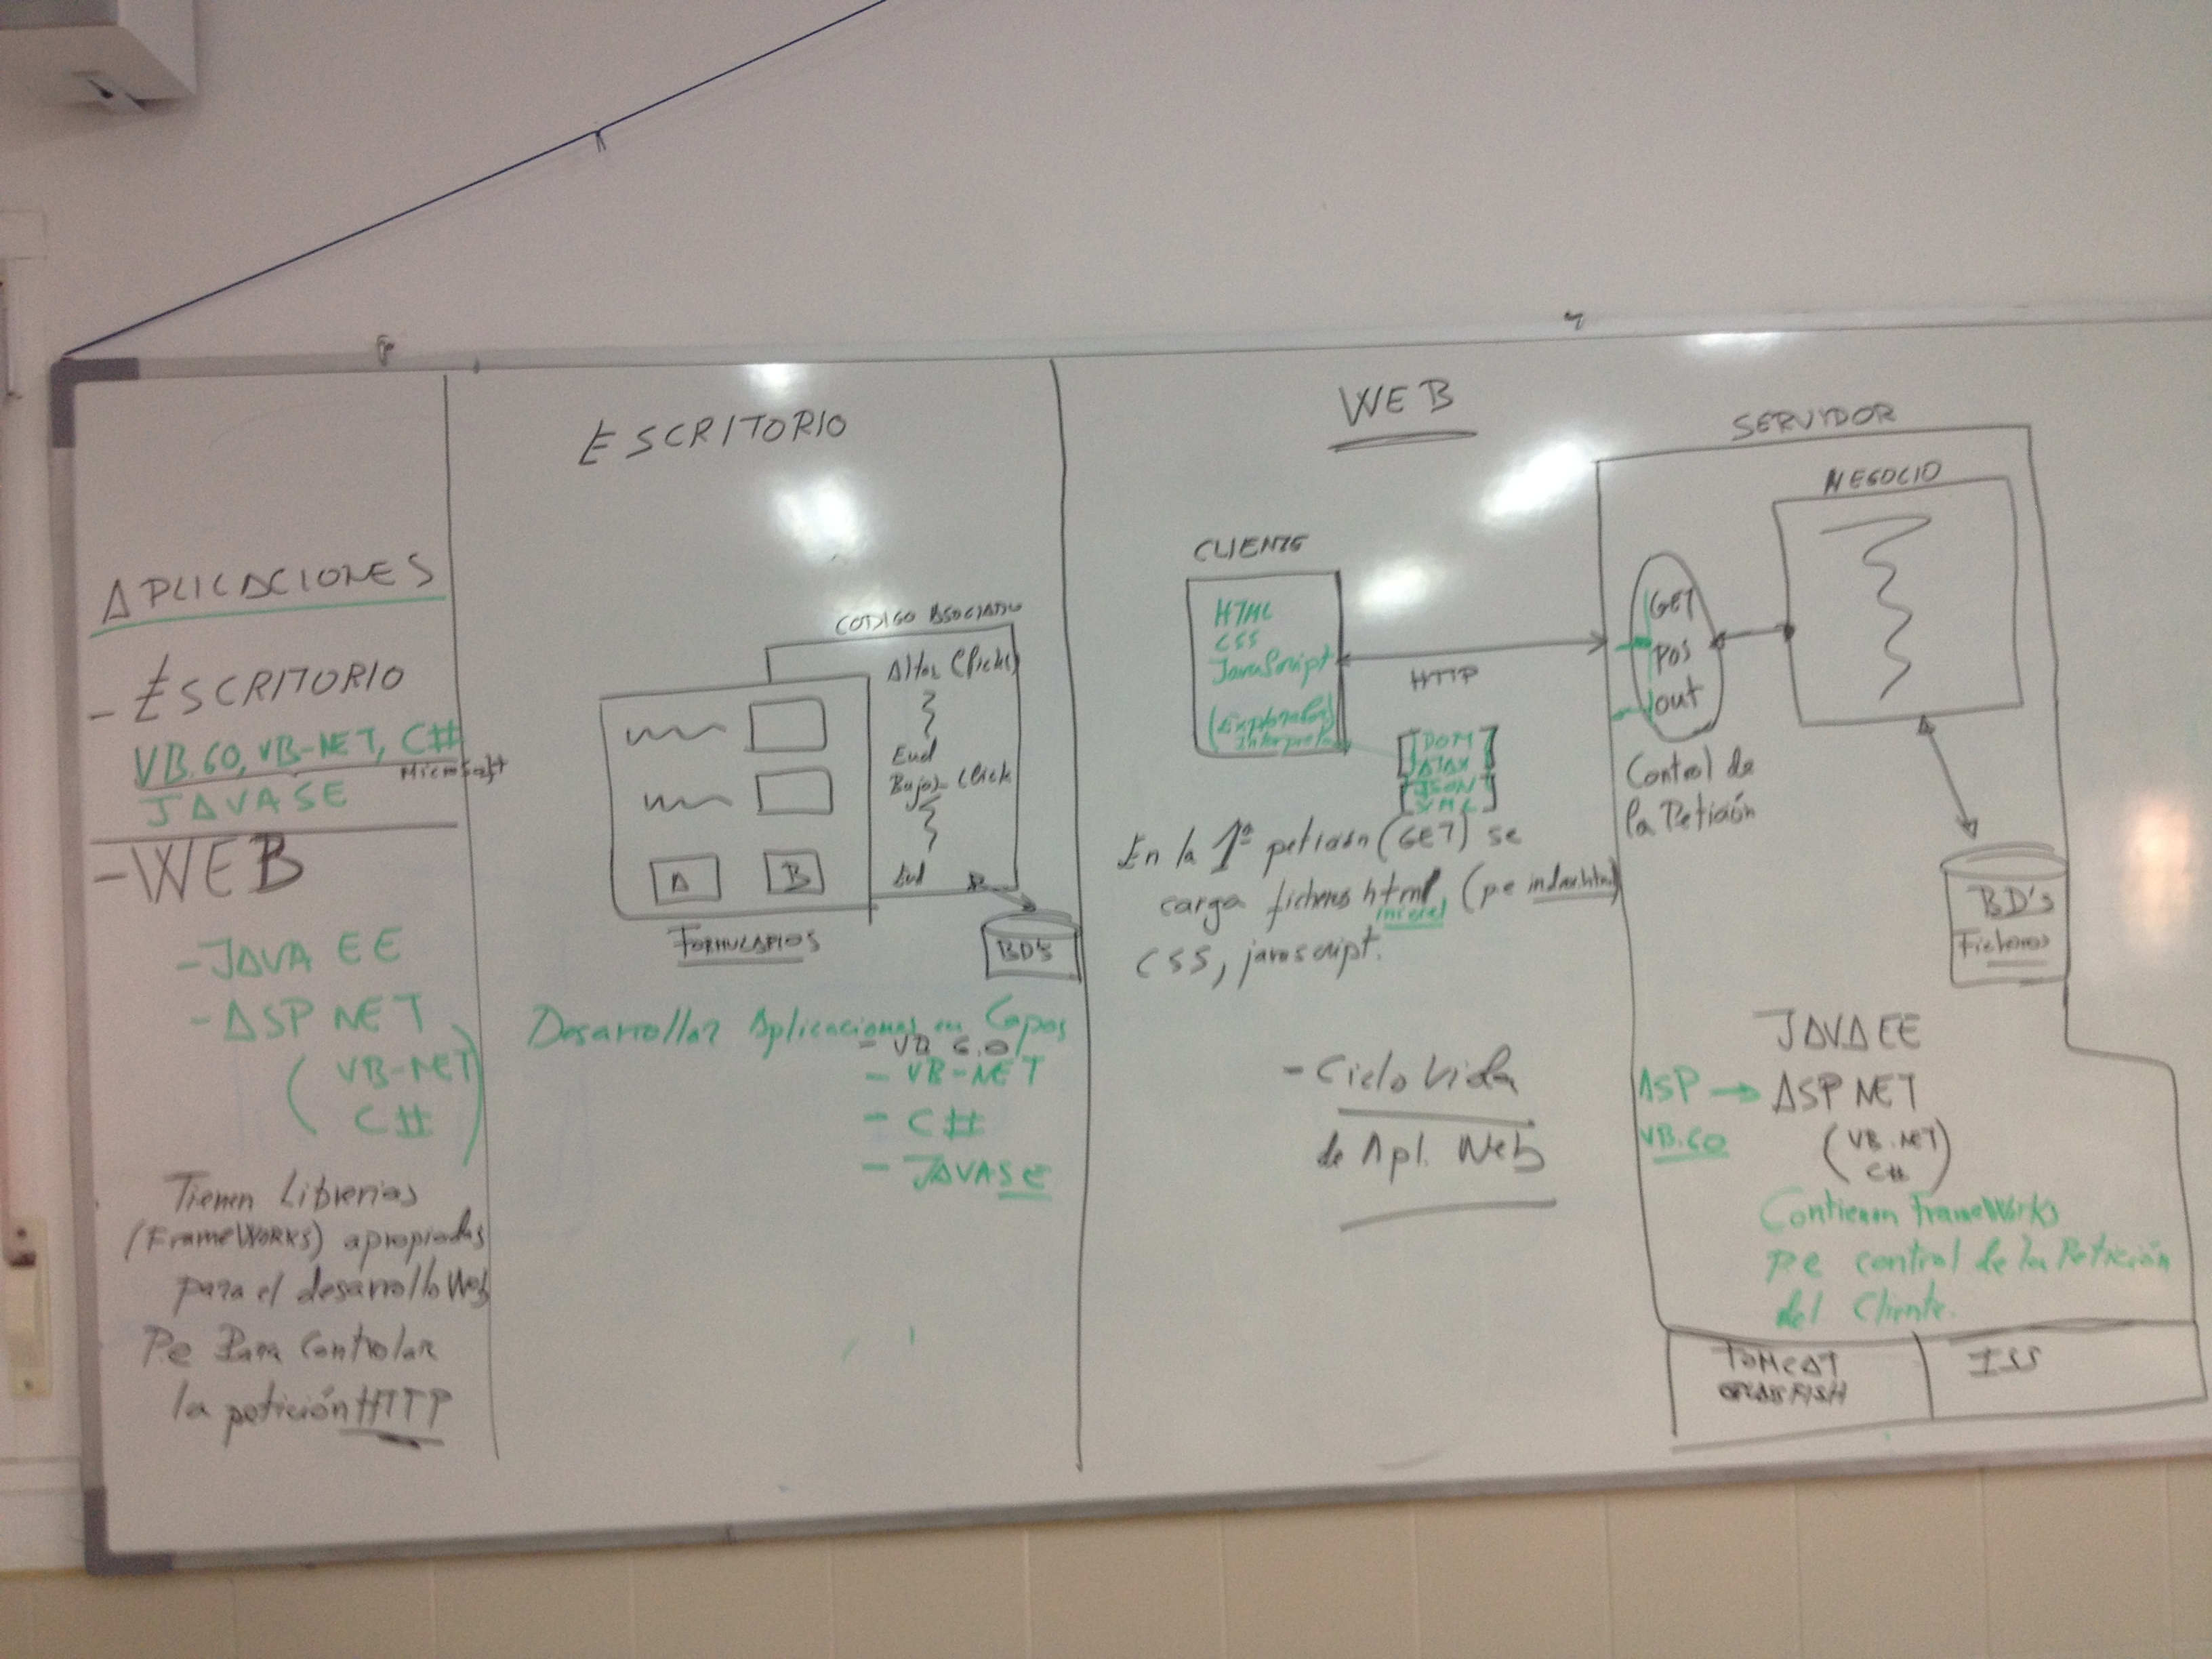 APLICACIONES
- ESCRITORIO
VB.60, VB-NET, C#
Microsoft
JAVASE
- WEB
- JAVA EE
- ASP NET
( VB-NET
C# )
Tienen Librerias
(FrameWORKS) apropiadas
para el desarrollo Web
P.e Para Controlar
la petición HTTP
ESCRITORIO
CODIGO ASOCIADO
Altas Click()
End
Bajas Click
End
A
B
FORMULARIOS
BD's
Desarrollar Aplicaciones en Capas
- VB 6.0
- VB-NET
- C#
- JAVASE
WEB
CLIENTE
HTML
CSS
JavaScript
(Explorador)
Interpreta
HTTP
DOM
AJAX
JSON
XML
En la 1ª petición (GET) se
carga ficheros html (p e index.html)
inicial
CSS, javascript.
- Ciclo Vida
de Apl. Web
SERVIDOR
NEGOCIO
GET
POS
out
Control de
la Petición
BD's
Ficheros
JAVA EE
ASP → ASP NET
VB.60
( VB.NET
C# )
Contienen FrameWorks
p.e control de la Petición
del Cliente.
TOMCAT
GLASSFISH
ISS